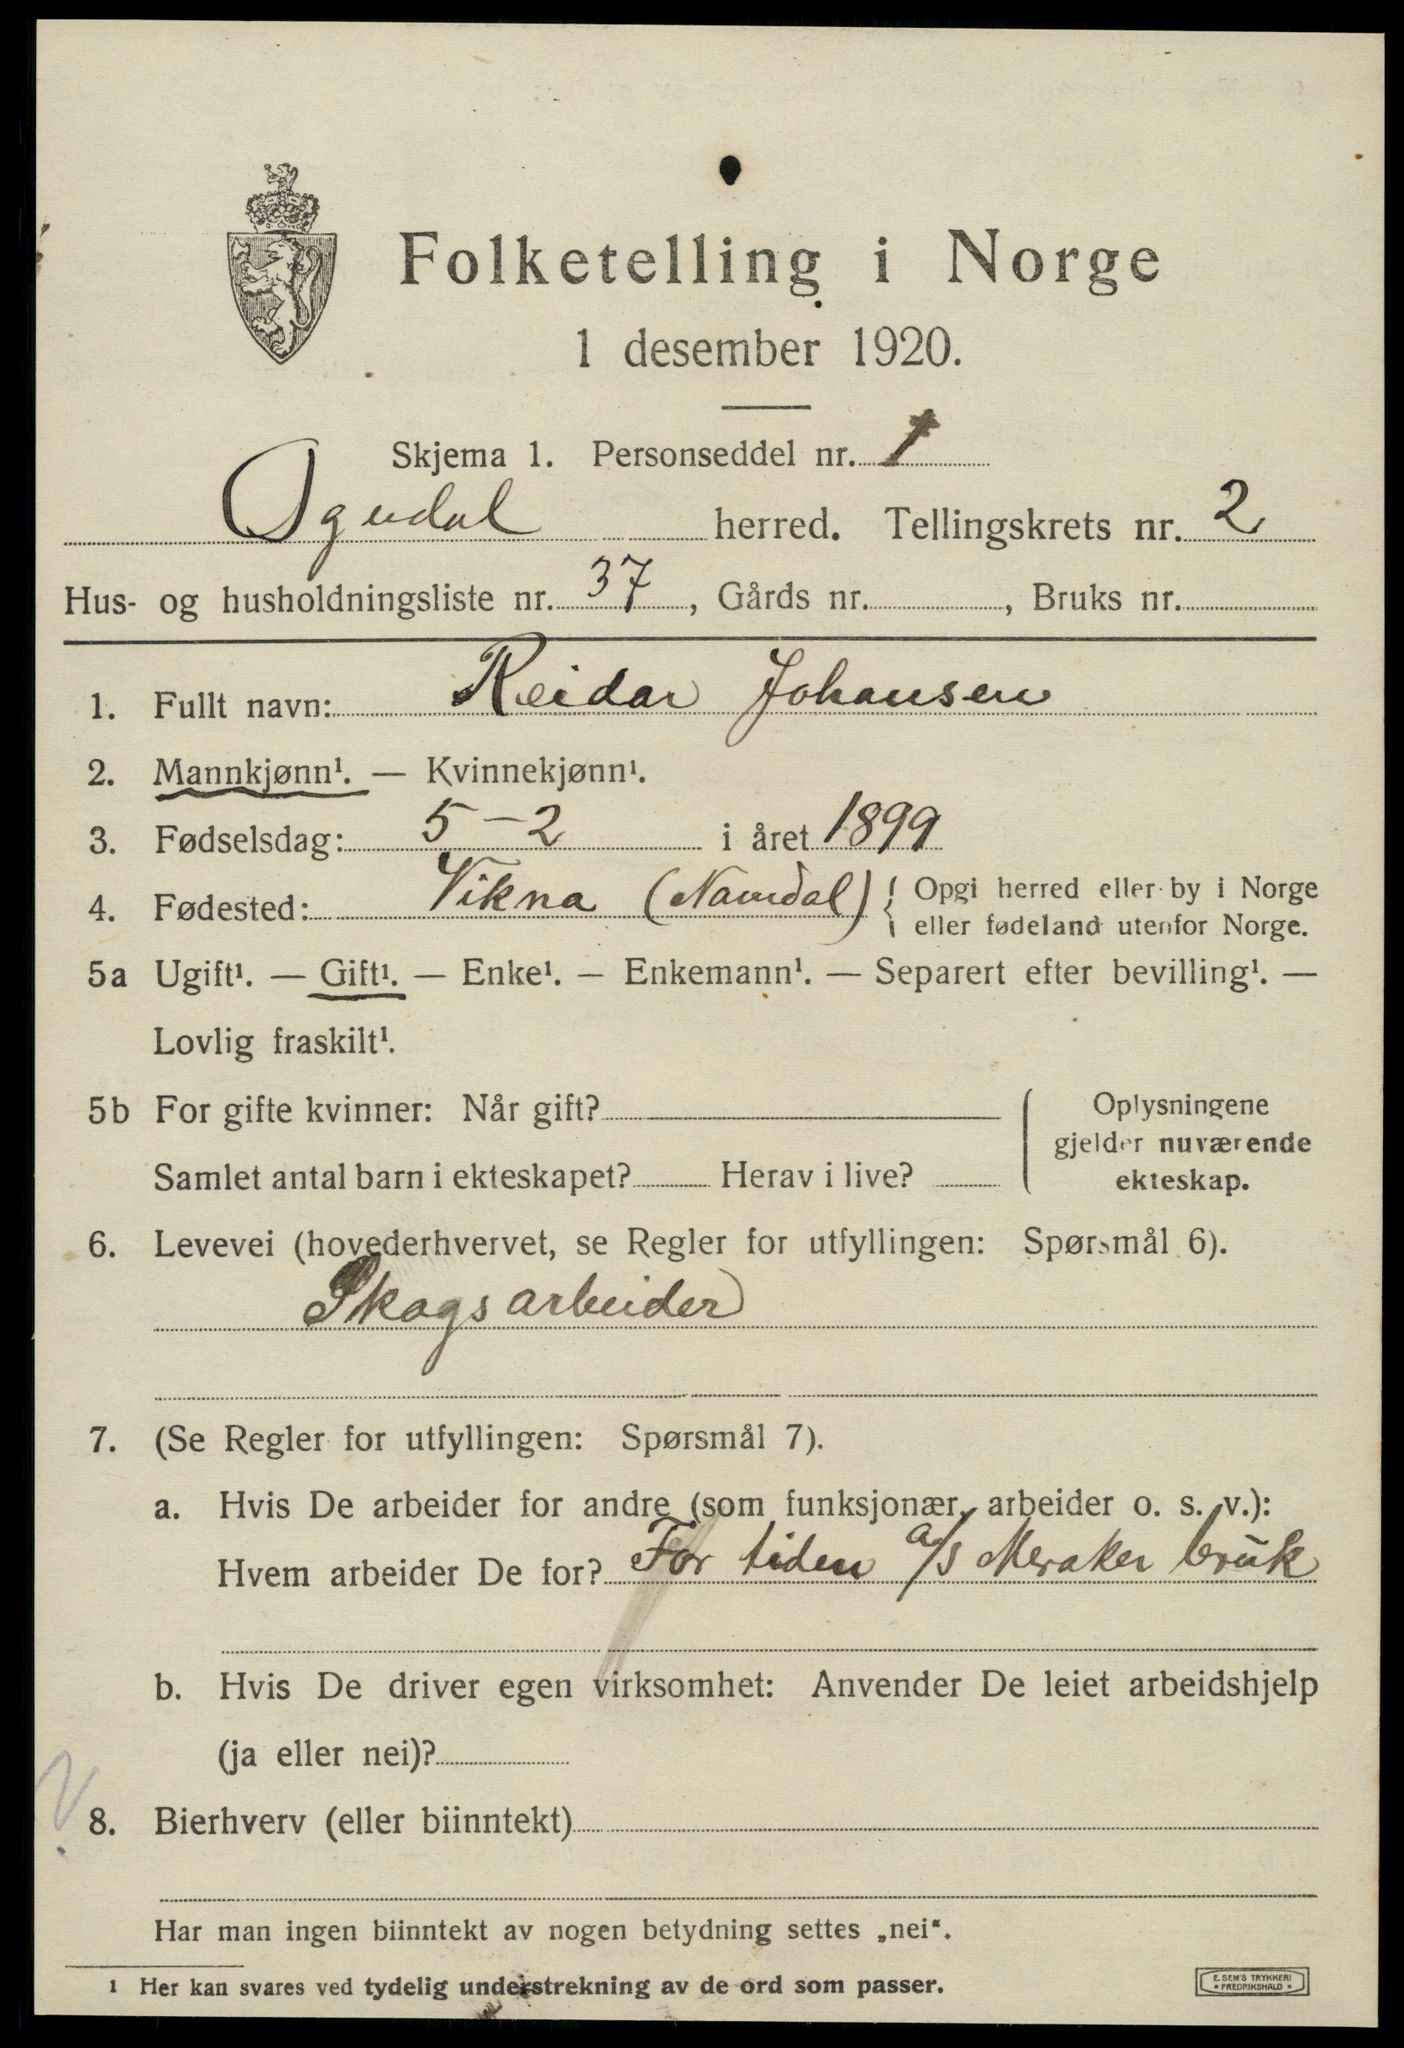 Folketelling i Norge
1 desember 1920.
Skjema 1. Personseddel nr. 1
Ogndal herred. Tellingskrets nr. 2
Hus- og husholdningsliste nr. 37, Gårds nr. , Bruks nr.
1. Fullt navn: Reidar Johansen
2. Mannkjønn¹. — Kvinnekjønn¹.
3. Fødselsdag: 5-2 i året 1899
4. Fødested: Vikna (Namdal) { Opgi herred eller by i Norge
eller fødeland utenfor Norge.
5a Ugift¹. — Gift¹. — Enke¹. — Enkemann¹. — Separert efter bevilling¹. —
Lovlig fraskilt¹.
5b For gifte kvinner: Når gift?
Samlet antal barn i ekteskapet? Herav i live?
Oplysningene
gjelder nuværende
ekteskap.
6. Levevei (hovederhvervet, se Regler for utfyllingen: Spørsmål 6).
Skogsarbeider
7. (Se Regler for utfyllingen: Spørsmål 7).
a. Hvis De arbeider for andre (som funksjonær, arbeider o. s. v.):
Hvem arbeider De for? For tiden a/s Meraker bruk
b. Hvis De driver egen virksomhet: Anvender De leiet arbeidshjelp
(ja eller nei)?
8. Bierhverv (eller biinntekt)
Har man ingen biinntekt av nogen betydning settes „nei“.
¹ Her kan svares ved tydelig understrekning av de ord som passer.
E. SEM'S TRYKKERI
• FREDRIKSHALD •